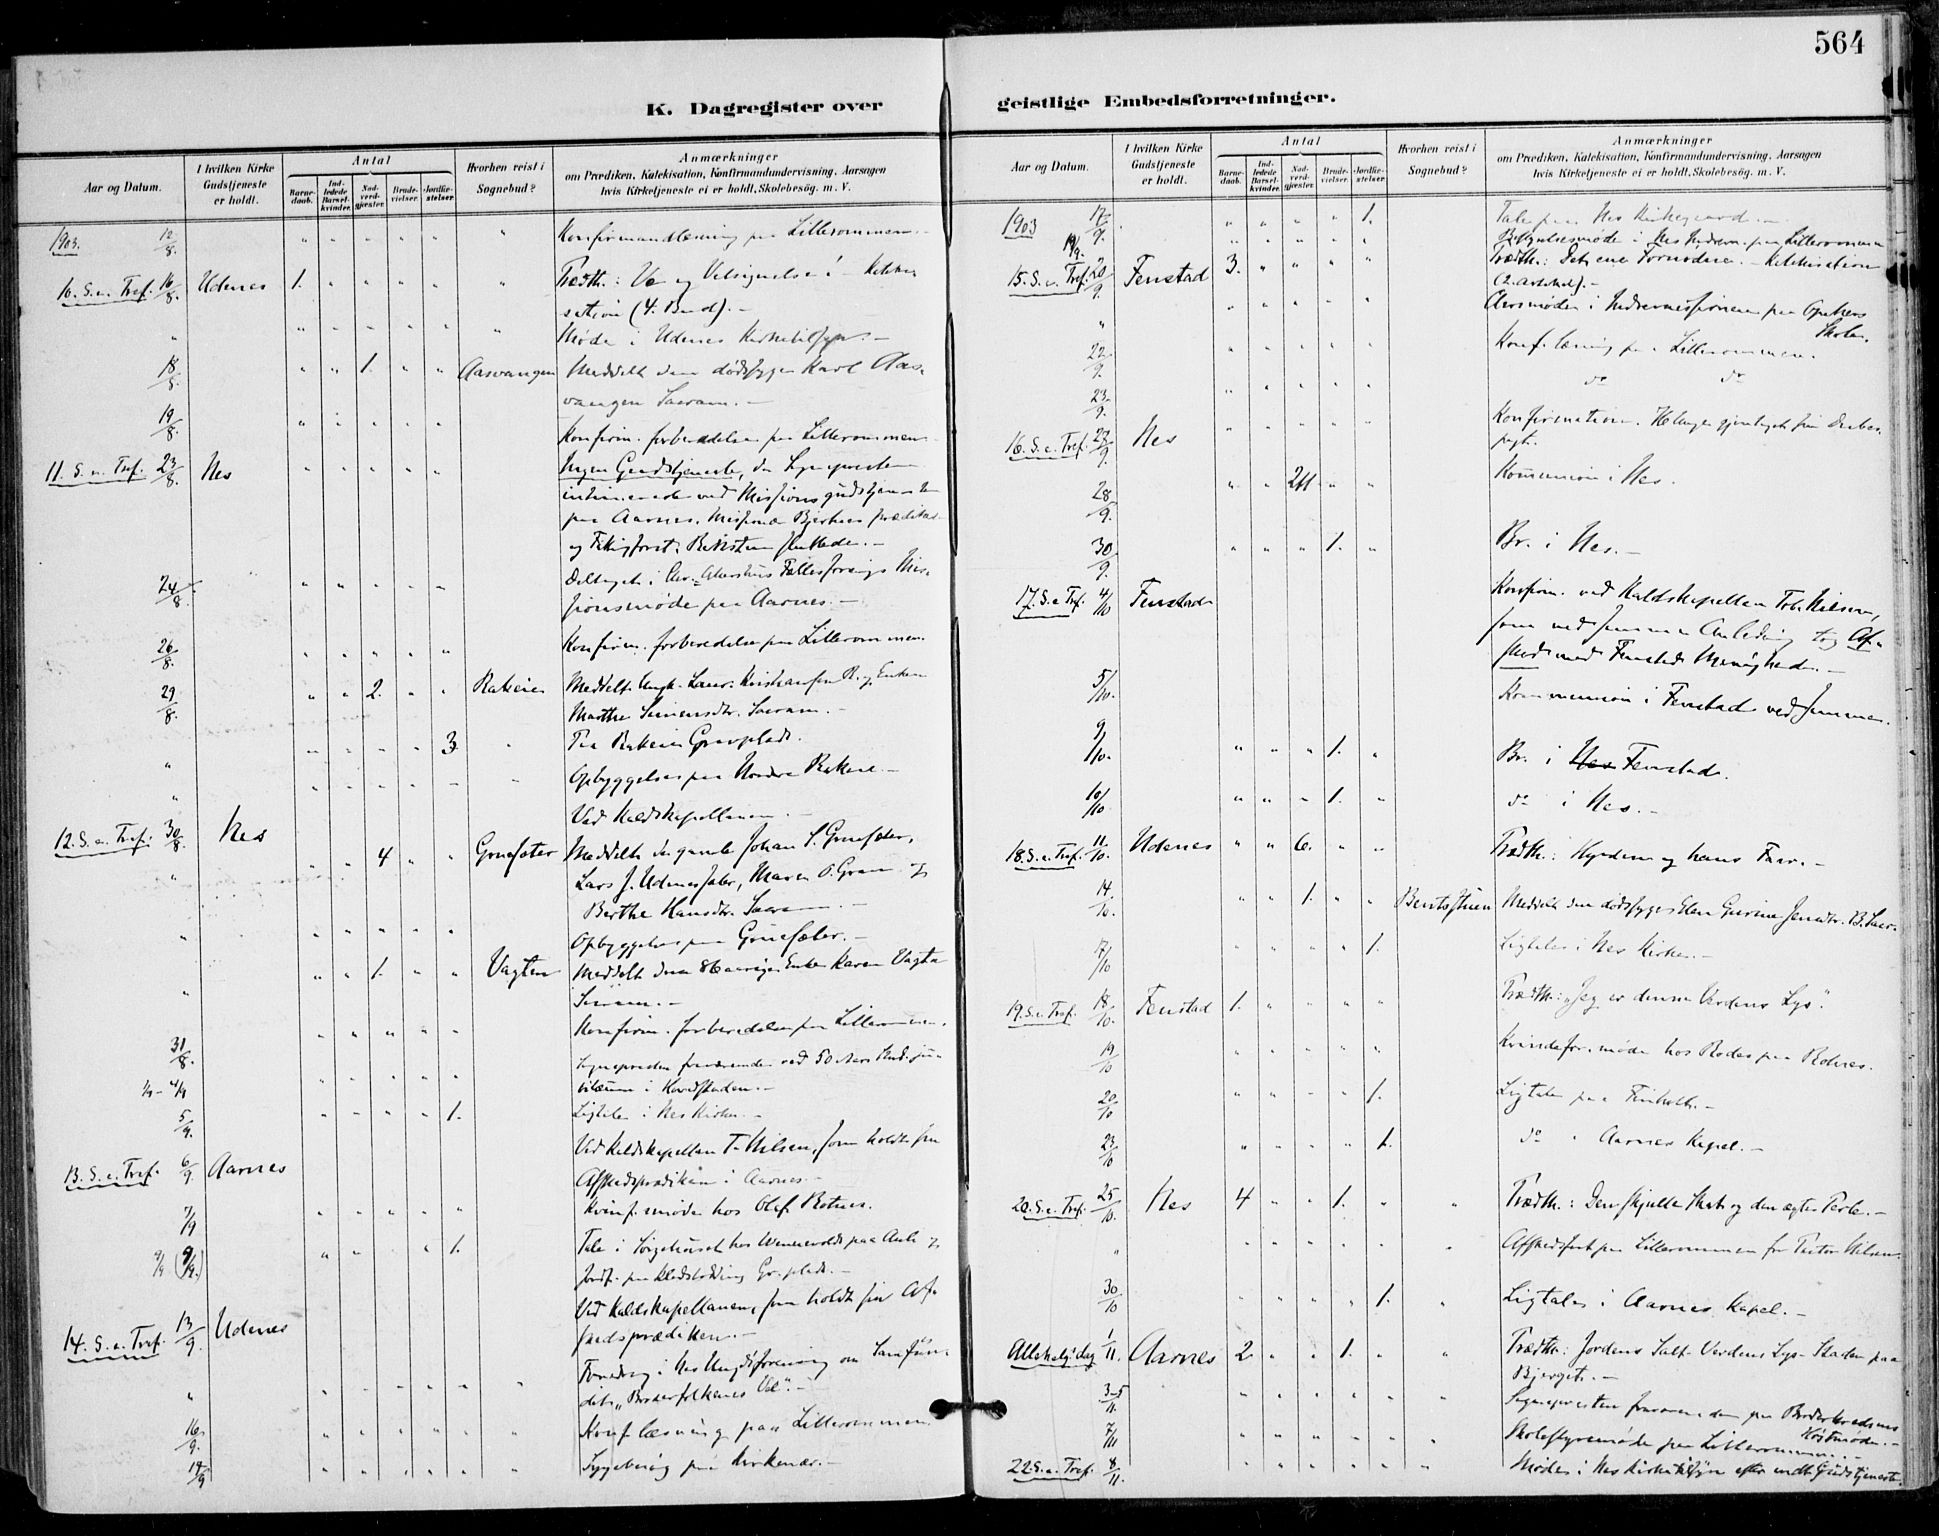 564
K. Dagregister over geistlige Embedsforretninger.
Aar og Datum.
I hvilken Kirke Gudstjeneste er holdt.
Antal
Barnedaab.
Indledede Barselkvinder.
Nadverdgjester.
Brudevielser.
Jordfæstelser.
Hvorhen reist i Sognebud?
Anmærkninger
om Prædiken, Katekisation, Konfirmandundervisning, Aarsagen
hvis Kirketjeneste ei er holdt, Skolebesög. m. V.
1903. 12/8. " " " " " " Konfirmandlæsning paa Lillerommen.
10. S. e. Tref. 16/8. Udenes 1. " " " " " Prædth.: Ve og Velsignelse! - Kateki
sation (4. Bud). -
" " " " " " " Møde i Udenes Kirketilsyn -
18/8. " " 1. " " Aasvangen Meddelt den dødssyge Karl Aas-
vangen Sacram. -
19/8. " " " " " Konfirm. forberedelse paa Lillerommen
11. S. e. Tref. 23/8. Nes " " " " " Ingen Gudstjeneste, da Sognepresten
ved Missionsgudstjeneste
paa Aarnes. Bjerknes
og
24/8. " " " " " Deltaget i Chr. Akershus Fællesforenings Mis-
sionsmøde paa Aarnes. -
26/8. " " " " " Konfirm. forberedelse paa Lillerommen.
29/8. " " 2. " " Rakeie Meddelt Laur. Kristiansen R. og Enken
Marthe Simensdtr. Sacram. -
" " " " " 3. " Paa Rakeie Gravplads.
" " " " " - " Opbyggelse paa Nordre Rakeie. -
12. S. e. Tref. 30/8. Nes Ved Kaldskapellanen. -
" " " 4 " " Gruesæter Meddelt den gamle Johan S. Gruesæter,
Lars J. Udenes, Maren O. Gruen og
Berthe Hansdtr. Sacram. -
" " " " " " Opbyggelse paa Gruesæter. -
" " " 1. " " Vagten Meddelt den 86 aarige Enke Karen Vagta
Sacram. -
31/8. " " " " " Konfirm. forberedelse paa Lillerommen.
1/9 - 4/9 " " " " " Sognepresten fraværende ved 50 Aars Stud. ju-
bilæum i Hovedstaden. -
5/9. " " " " 1. Ligtale i Nes Kirke. -
13. S. e. Tref. 6/9. Aarnes Ved Kaldskapellan T. Nilsen, som holdt sin
Afskedsprædiken i Aarnes. -
7/9 " " " " " Kvinf. møde hos Olef Rotnes.
9/9 (9/9.) " " " " 1. Tale i Sørgehuset hos paa og
Jordf. paa Gr. plads. -
14. S. e. Tref. 13/9. Udenes Ved Kaldskapellanen, som holdt sin Af-
skedsprædiken. -
" " " " " " " Foredrag i Nes Ungdsforening om Samfun-
det „Broderfolkenes Vel”. -
16/9. " " " " " " Konf. læsning paa Lillerommen.
/9 " " " " " " Sygebesøg paa Kirkenær. -
Aar og Datum.
I hvilken Kirke Gudstjeneste er holdt.
Antal
Barnedaab.
Indledede Barselkvinder.
Nadverdgjester.
Brudevielser.
Jordfæstelser.
Hvorhen reist i Sognebud?
Anmærkninger
om Prædiken, Katekisation, Konfirmandundervisning, Aarsagen
hvis Kirketjeneste ei er holdt, Skolebesög. m. V.
1903 17/9. " " " " 1. Tale paa Nes Kirkegaard. -
19/9. " " " " " Bestyrelsesmøde i Nes Indrem. paa Lillerommen
15. S. e. Tref. 20/9. Fenstad 3. " " " " Prædth.: Det ene Fornødne. - Katekisation
(2. Artikel). -
" " " " " " Aarsmøde i Indremissionen paa Opaker
Skole.
22/9. " " " " " Konf. læsning paa Lillerommen.
23/9. " " " " " do do
16. S. e. Tref. 27/9. Nes " " " " " Konfirmation.
pagt.
28/9. " " 24. " " Kommunion i Nes.
30/9. " " " 1. " Br. i Nes. -
17. S. e. Tref. 4/10 Fenstad Konfirm. ved Kaldskapellan Tob. Nilsen,
som ved samme Anledning tog Af-
sked med Fenstad Menighed. -
5/10. Kommunion i Fenstad ved samme.
9/10. " " " 1. " Br. i Nes Fenstad.
10/10. " " " 1. " do i Nes. -
18. S. e. Tref. 11/10. Udenes " " 6. " " Prædth.: Hyrden og hans Faar. -
14/10. " " 1. " " Bentsstuen Meddelt den dødssyge Gurine Jensdtr. B. Sacr.
17/10 " " " " 1. Ligtale i Nes Kirke. -
19. S. e. Tref. 18/10. Fenstad 1. " " " " Prædth.: „Jeg er denne Verdens Lys”.
19/10 " " " " " Kvindefor. møde hos Rodes paa Rotnes.
20/10 " " " " 1. Ligtale paa Finholt. -
23/10 " " " " 1. do " Aarnes Kapel. -
20. S. e. Tref. 25/10. Nes 4 " " 1. " " Prædth.: Den skjulte Skat og den ægte Perle. -
" " " " " " " Afskedsfest paa Lillerommen for Pastor Nilsen.
30/10 " " " " 1. " Ligtale i Aarnes Kapel. -
Allehelg.dag 1/11. Aarnes 2 " " 1. " " Prædth.: Jordens Salt - Verdens Lys - Staden paa
Bjerget. -
3-5/11. " " " " " " Sognepresten fraværende paa Broderkredsens
Høstmøde. -
7/11 " " " " " " Skolestyremøde paa Lillerommen
22. S. e. Tref. 8/11. " " " " " " Møde i Nes Kirketilsyn efter endt Gudstjeneste.